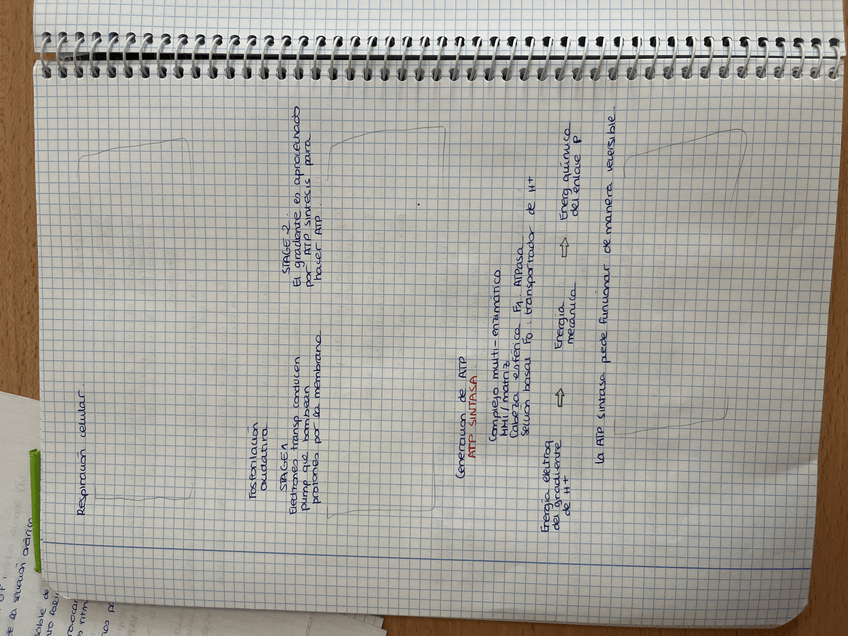 Respiración celular.
Fosforilación
oxidativa
STAGE 1
Electrones transp. conducen
pump que bombean
protones por la membrana
STAGE 2.
El gradiente es aprovechado
por ATP sintesis para
hacer ATP.
Generación de ATP
ATP SINTASA
Complejo multi-enzimático
MMI/matriz
Cabeza esférica F1. ATPasa
Sección basal F0: transportador de H+
Energía electroq
del gradiente
de H+
⇨
Energía
mecánica
⇨
Energ química
del enlace P
La ATP sintasa pede funcionar de manera reversible.